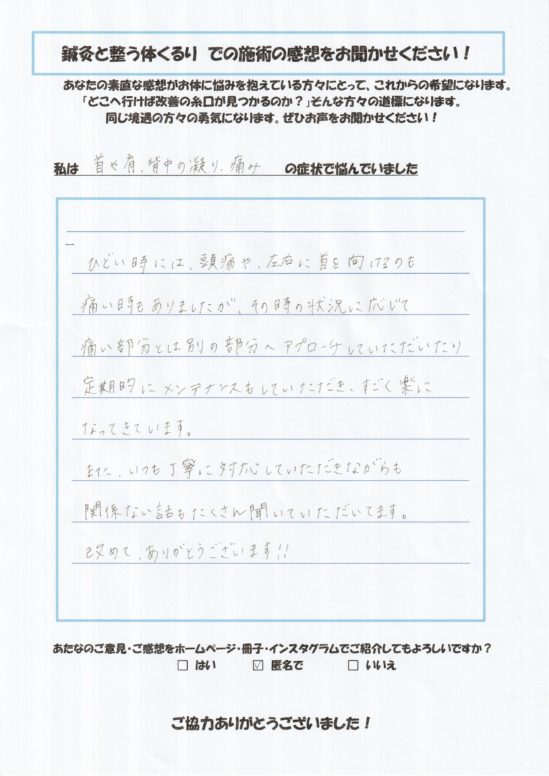 鍼灸と整う体くるり での施術の感想をお聞かせください！
あなたの素直な感想がお体に悩みを抱えている方々にとって、これからの希望になります。
「どこへ行けば改善の糸口が見つかるのか？」そんな方々の道標になります。
同じ境遇の方々の勇気になります。ぜひお声をお聞かせください！
私は 首や肩、背中の凝り、痛み の症状で悩んでいました
ひどい時には、頭痛や、左右に首を向けるのも
痛い時もありましたが、その時の状況に応じて
痛い部分とは別の部分へアプローチしていただいたり
定期的にメンテナンスもしていただき、すごく楽に
なってきています。
また、いつも丁寧に対応していただきながらも
関係ない話もたくさん聞いていただいてます。
改めて、ありがとうございます!!
あたなのご意見・ご感想をホームページ・冊子・インスタグラムでご紹介してもよろしいですか？
□ はい ☑ 匿名で □ いいえ
ご協力ありがとうございました！